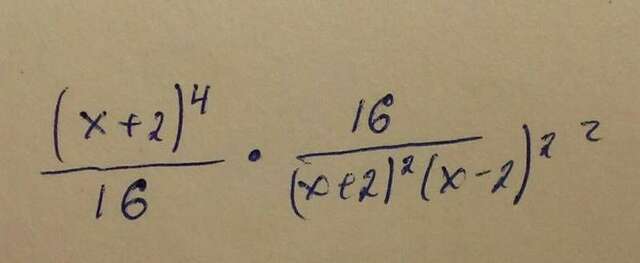 (x+2)⁴/16 · 16/((x+2)²(x-2)²) =